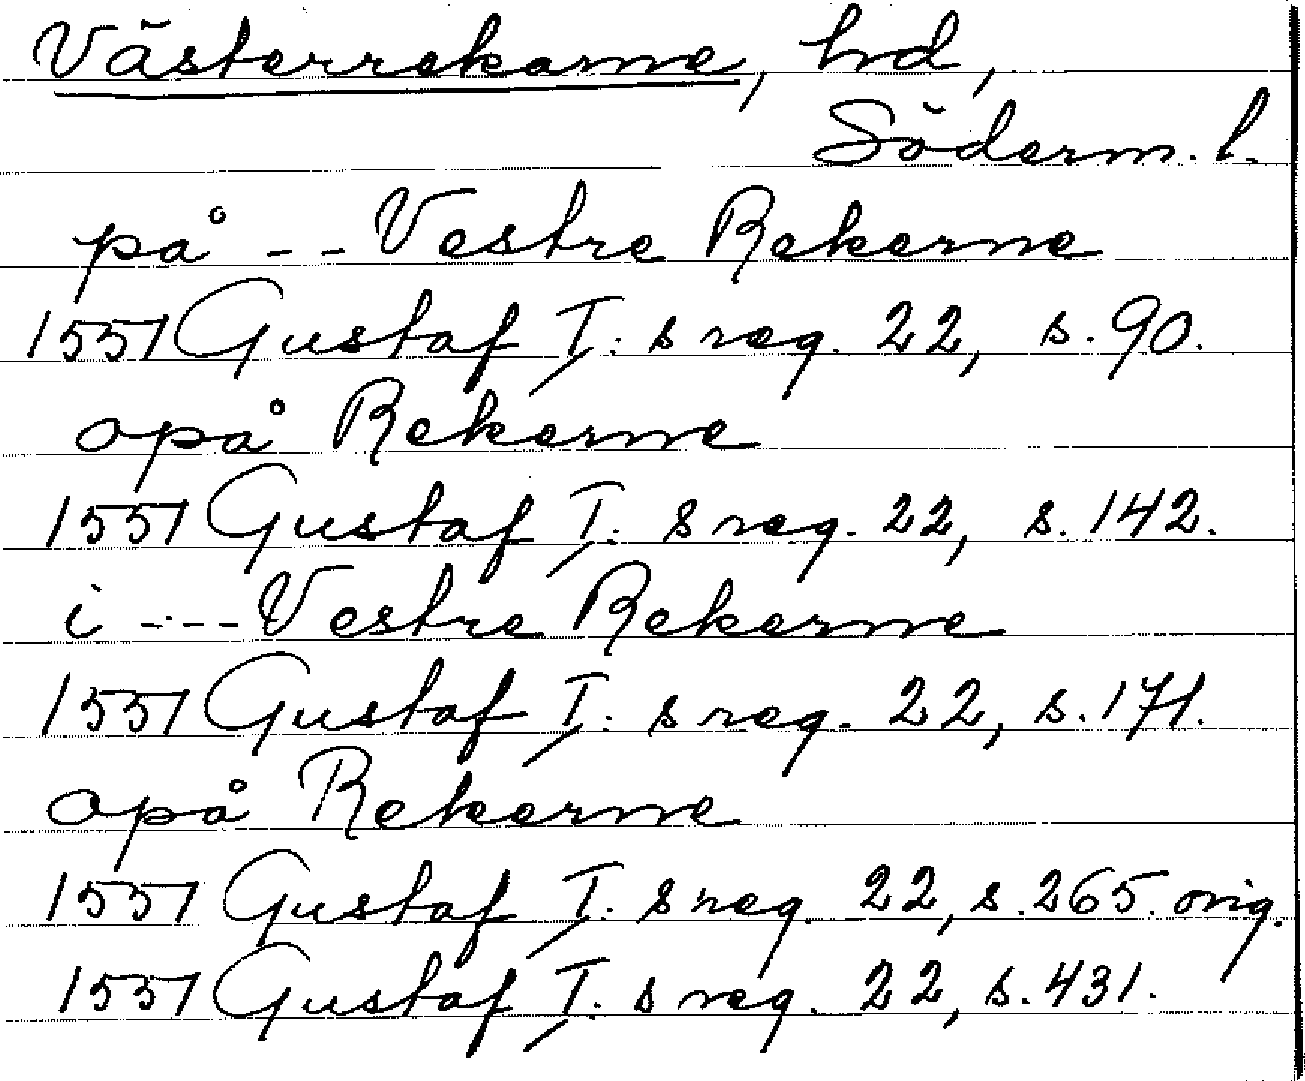 Västerrekarne, hd,
Söderm. l.
på -- Vestre Rekerne
1551 Gustaf I:s reg. 22, s. 90.
opå Rekerne
1551 Gustaf I:s reg. 22, s. 142.
i --- Vestre Rekerne
1551 Gustaf I:s reg. 22, s. 171.
opå Rekerne
1551 Gustaf I:s reg. 22, s. 265. orig.
1551 Gustaf I:s reg. 22, s. 431.